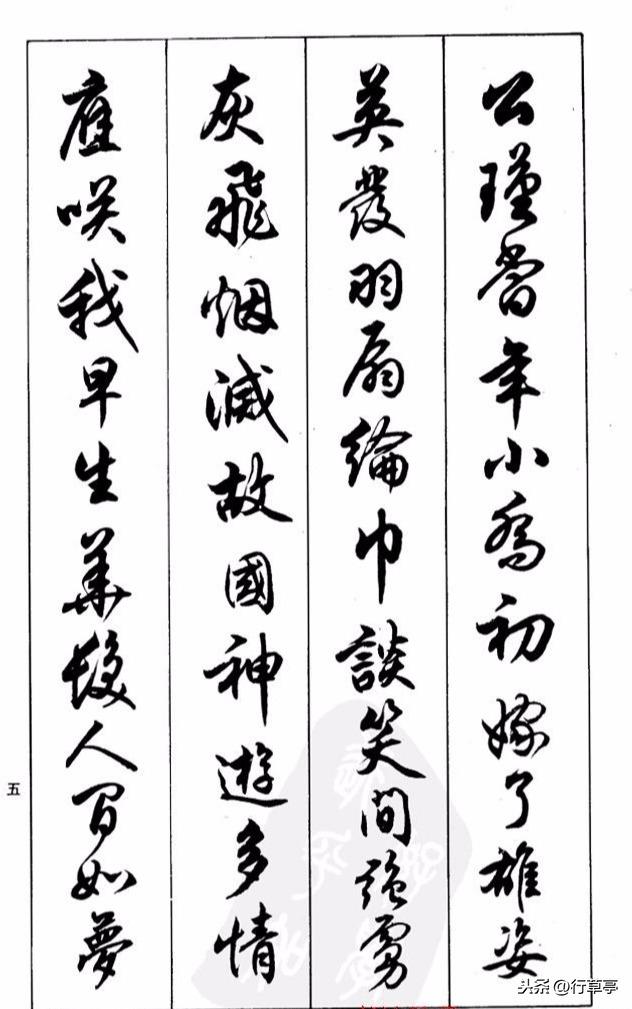 公瑾當年小喬初嫁了雄姿
英發羽扇綸巾談笑間强虜
灰飛烟滅故國神遊多情
應咲我早生華髮人間如夢
五
头条@行草亭